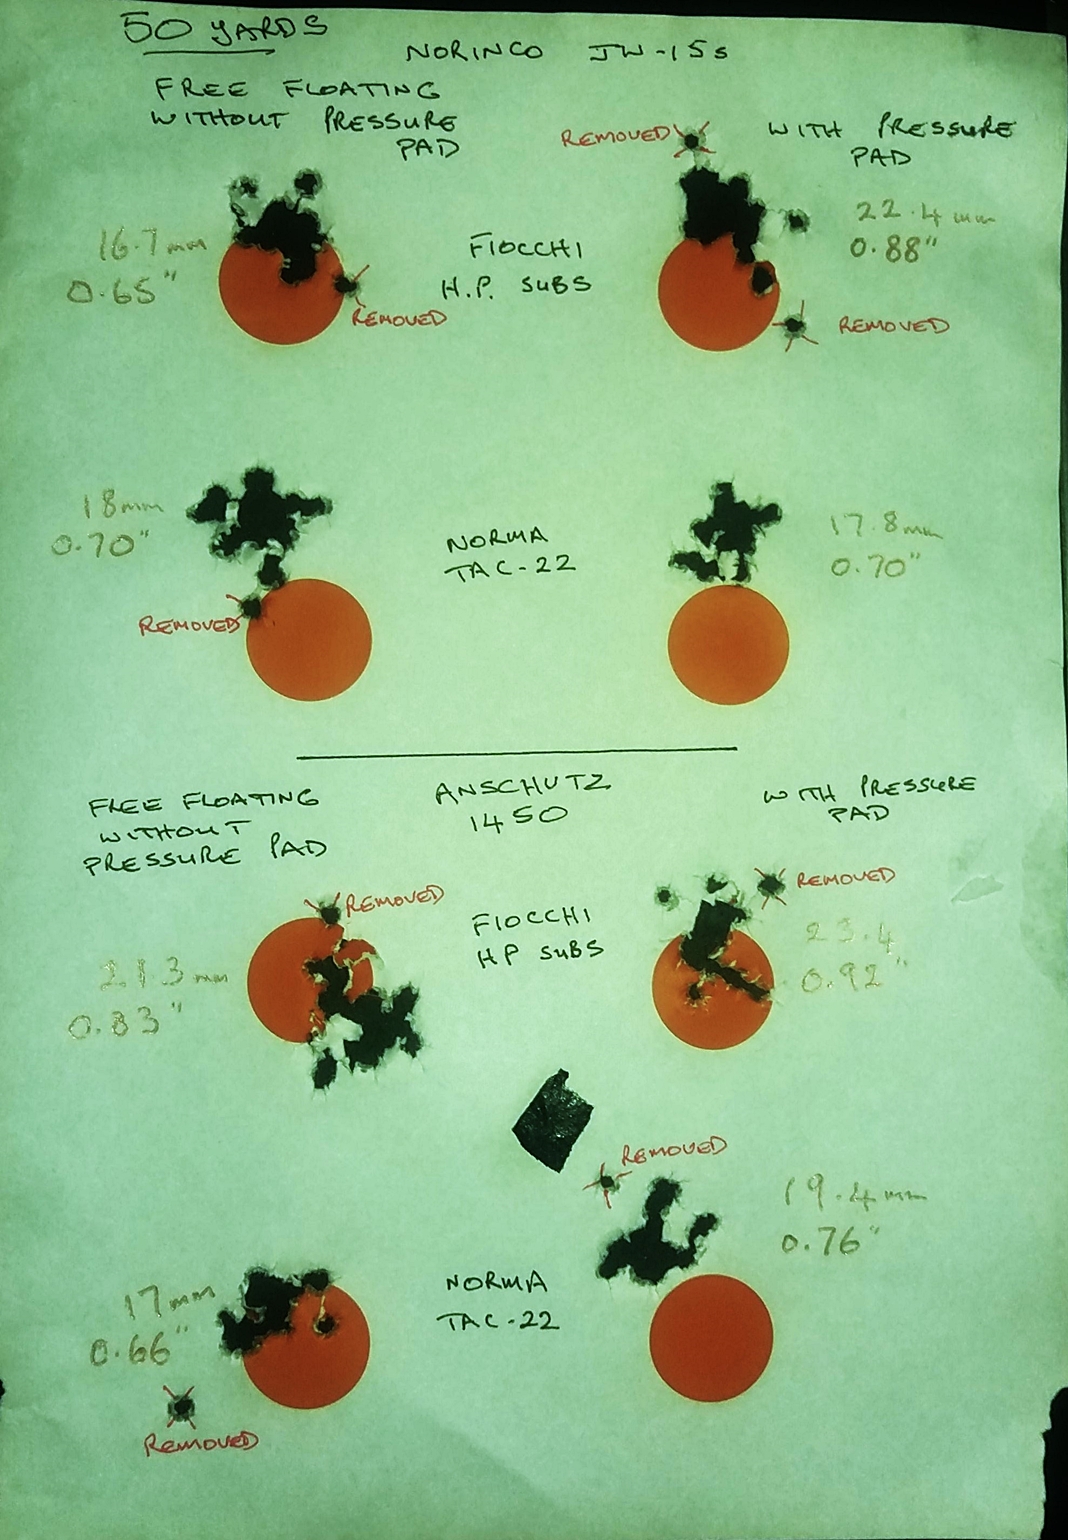 50 YARDS
NORINCO JW-15s
FREE FLOATING
WITHOUT PRESSURE
PAD
REMOVED
WITH PRESSURE
PAD
16.7mm
0.65"
FIOCCHI
H.P. SUBS
22.4mm
0.88"
REMOVED
REMOVED
18mm
0.70"
NORMA
TAC-22
17.8mm
0.70"
REMOVED
ANSCHUTZ
1450
FREE FLOATING
WITHOUT
PRESSURE PAD
WITH PRESSURE
PAD
REMOVED
REMOVED
21.3mm
0.83"
FIOCCHI
HP SUBS
23.4
0.92"
REMOVED
19.4mm
0.76"
17mm
0.66"
NORMA
TAC-22
REMOVED